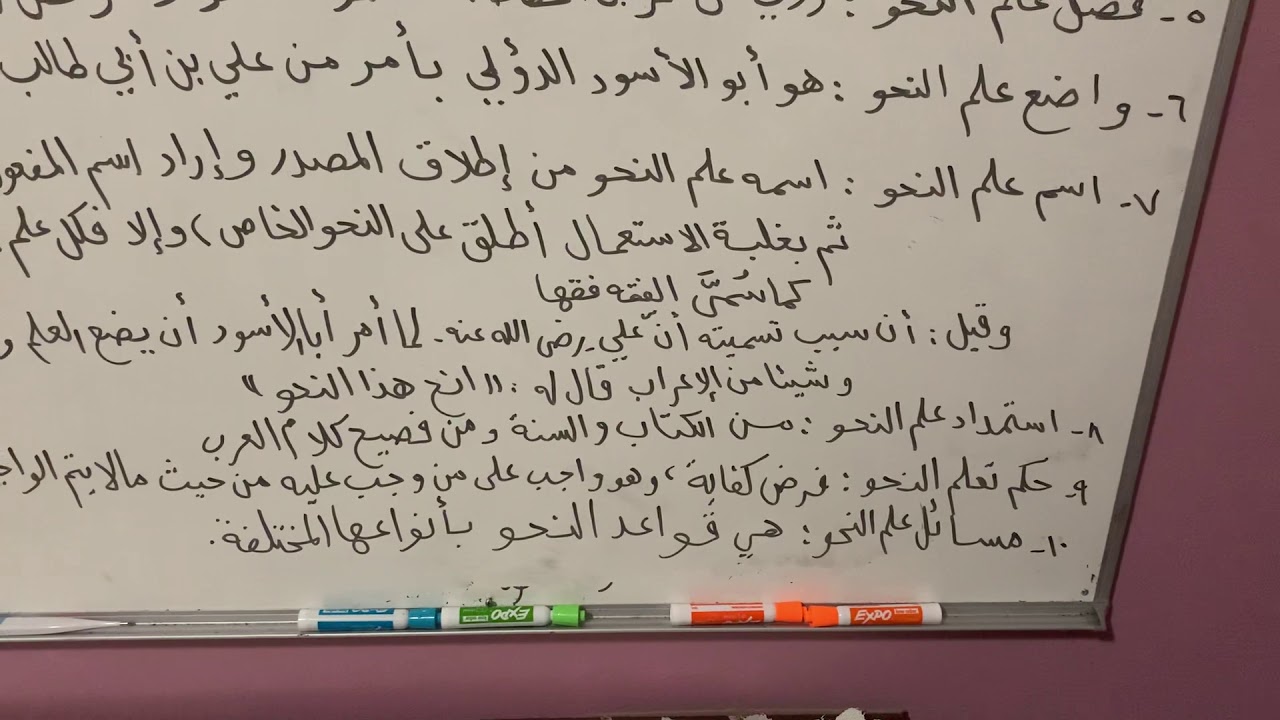 ٥- فضل علم النحو :
٦- واضع علم النحو : هو أبو الأسود الدؤلي بأمر من علي بن أبي طالب
٧- اسم علم النحو : اسمه علم النحو من إطلاق المصدر وإراد اسم المفعو
ثم بغلبة الاستعمال أطلق على النحو الخاص) وإلا فكل علم
كما سُمَّى الفقه فقها
وقيل : أن سبب تسميته أنّ علي- رضى الله عنه - لما أمر أبا الأسود أن يضع العلم و
وشيئا من الإعراب قال له : "انح هذا النحو"
٨- استمداد علم النحو : من الكتاب والسنة ومن فصيح كلام العرب
٩- حكم تعلم النحو : فرض كفاية، وهو واجب على من وجب عليه من حيث مالا يتم الواجـ
١٠- مسائل علم النحو : هي قواعد النحو بأنواعها المختلفة .
EXPO
EXPO